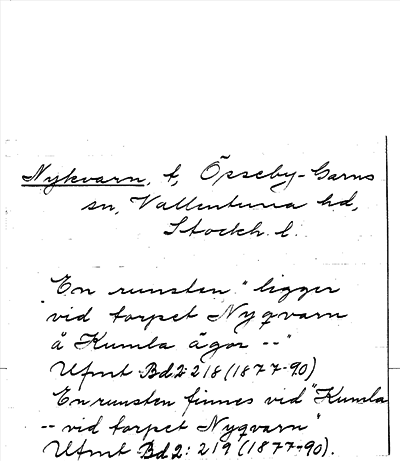 Nykvarn, t, Össeby-Garns
sn, Vallentuna hd,
Stockh. l.
"En runsten" ligger
vid torpet Nyqvarn
å Kumla ägor --"
Ufmt Bd 2: 218 (1877-90)
En runsten finnes vid "Kumla
-- vid torpet Nyqvarn"
Ufmt Bd 2: 219 (1877-90).